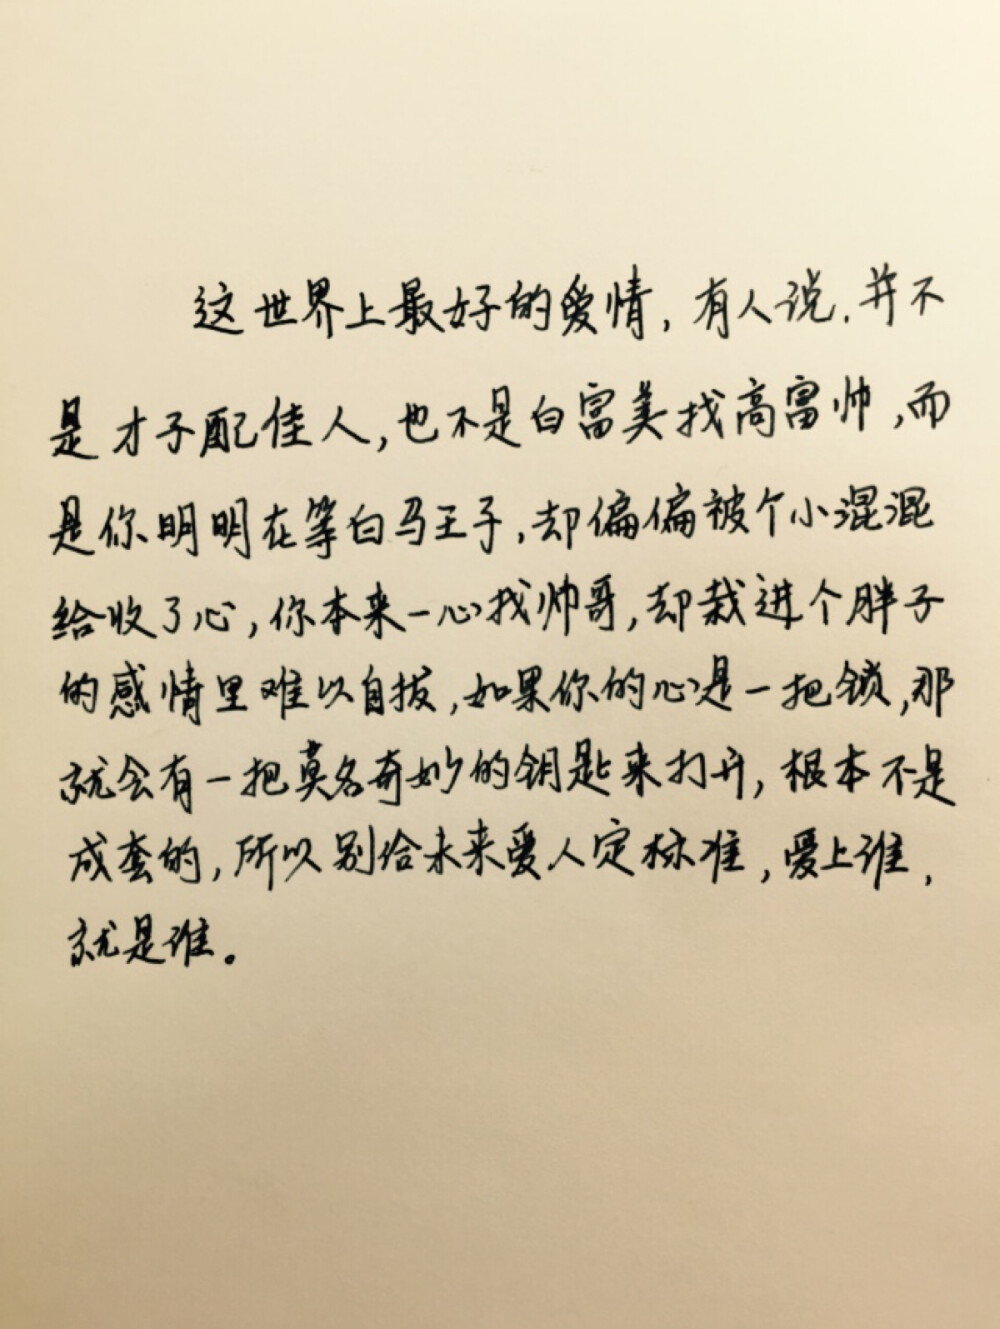 这世界上最好的爱情，有人说，并不
是才子配佳人，也不是白富美找高富帅，而
是你明明在等白马王子，却偏偏被个小混混
给收了心，你本来一心找帅哥，却栽进个胖子
的感情里难以自拔，如果你的心是一把锁，那
就会有一把莫名奇妙的钥匙来打开，根本不是
成套的，所以别给未来爱人定标准，爱上谁，
就是谁。